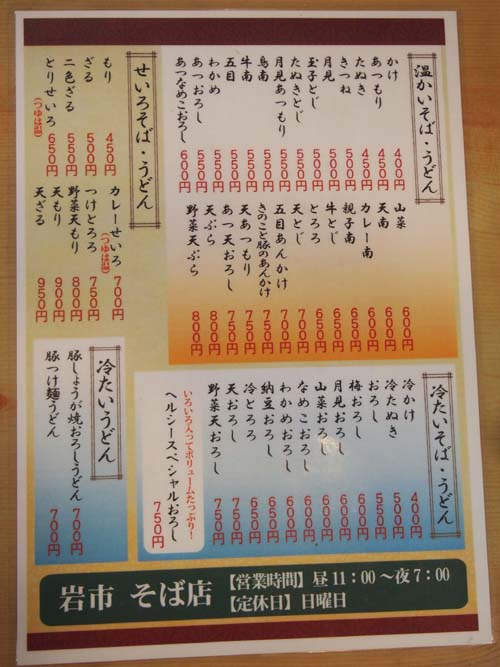 温かいそば・うどん
かけ 400円
あつもり 450円
たぬき 450円
きつね 500円
月見 500円
玉子とじ 500円
たぬきとじ 550円
月見あつもり 550円
鳥南 550円
牛南 550円
五目 550円
わかめ 550円
あつおろし 550円
あつなめこおろし 600円
山菜 600円
天南 600円
カレー南 600円
親子南 650円
牛とじ 650円
とろろ 650円
天とじ 700円
五目あんかけ 700円
きのこと豚のあんかけ 750円
天あつもり 750円
あつ天おろし 750円
天ぷら 800円
野菜天ぷら 800円
せいろそば・うどん
もり 450円
ざる 500円
二色ざる 550円
とりせいろ 650円
(つゆは温)
カレーせいろ 700円
(つゆは温)
つけとろろ 750円
野菜天もり 800円
天もり 900円
天ざる 950円
冷たいそば・うどん
冷かけ 400円
冷たぬき 500円
おろし 550円
梅おろし 600円
月見おろし 600円
山菜おろし 600円
なめこおろし 600円
わかめおろし 600円
納豆おろし 650円
冷とろろ 650円
天おろし 750円
野菜天おろし 750円
いろいろ入ってボリュームたっぷり!
ヘルシースペシャルおろし 750円
冷たいうどん
豚しょうが焼おろしうどん 700円
豚つけ麺うどん 700円
岩市 そば店
【営業時間】昼11：00～夜7：00
【定休日】日曜日